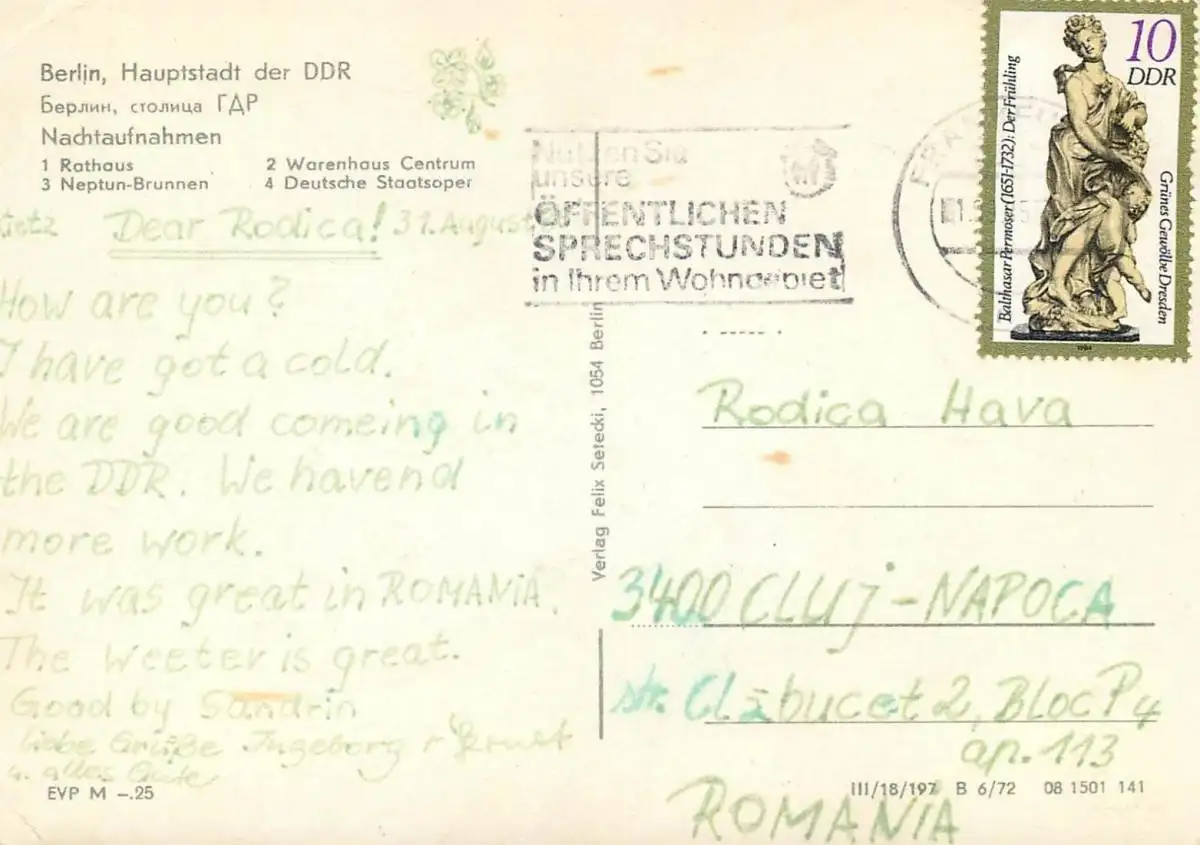 Berlin, Hauptstadt der DDR
Берлин, столица ГДР
Nachtaufnahmen
1 Rathaus 2 Warenhaus Centrum
3 Neptun-Brunnen 4 Deutsche Staatsoper
Dear Rodica! 31. August
How are you?
I have got a cold.
We are good comeing in
the DDR. We havend
more work.
It was great in ROMANiA.
The weeter is great.
Good by Sandrin
liebe Grüße Ingeborg
u. alles Gute
EVP M –.25
Verlag Felix Setecki, 1054 Berlin
Nutzen Sie
unsere
ÖFFENTLICHEN
SPRECHSTUNDEN
in Ihrem Wohngebiet
10
DDR
Balthasar Permoser (1651-1732): Der Frühling
Grünes Gewölbe Dresden
1984
Rodica Hava
3400 CLUj-NAPOCA
str. Clăbucet 2, BLOC P4
ap. 113
ROMANiA
III/18/197 B 6/72 08 1501 141